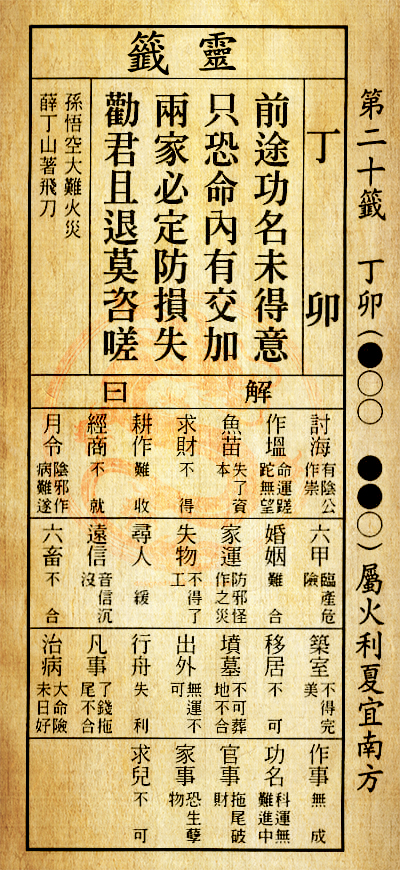 第二十籤 丁卯(●○○ ●●○)屬火利夏宜南方
靈籤
丁卯
前途功名未得意
只恐命內有交加
兩家必定防損失
勸君且退莫咨嗟
孫悟空大難火災
薛丁山著飛刀
解曰
討海 有陰公作崇
作塭 命運蹉跎無望
魚苗 失了資本
求財 不得
耕作 難收
經商 不就
月令 陰邪作病難遂
六甲 臨產危險
婚姻 難合
家運 防邪怪作之災
失物 不得了工
尋人 緩
遠信 音信沉沒
六畜 不合
築室 不得完美
移居 不可
墳墓 不可葬地不合
出外 無運不可
行舟 失利
凡事 了錢拖尾不合
治病 大命險未日好
作事 無成
功名 科運無難進中
官事 拖尾破財
家事 恐生孽物
求兒 不可